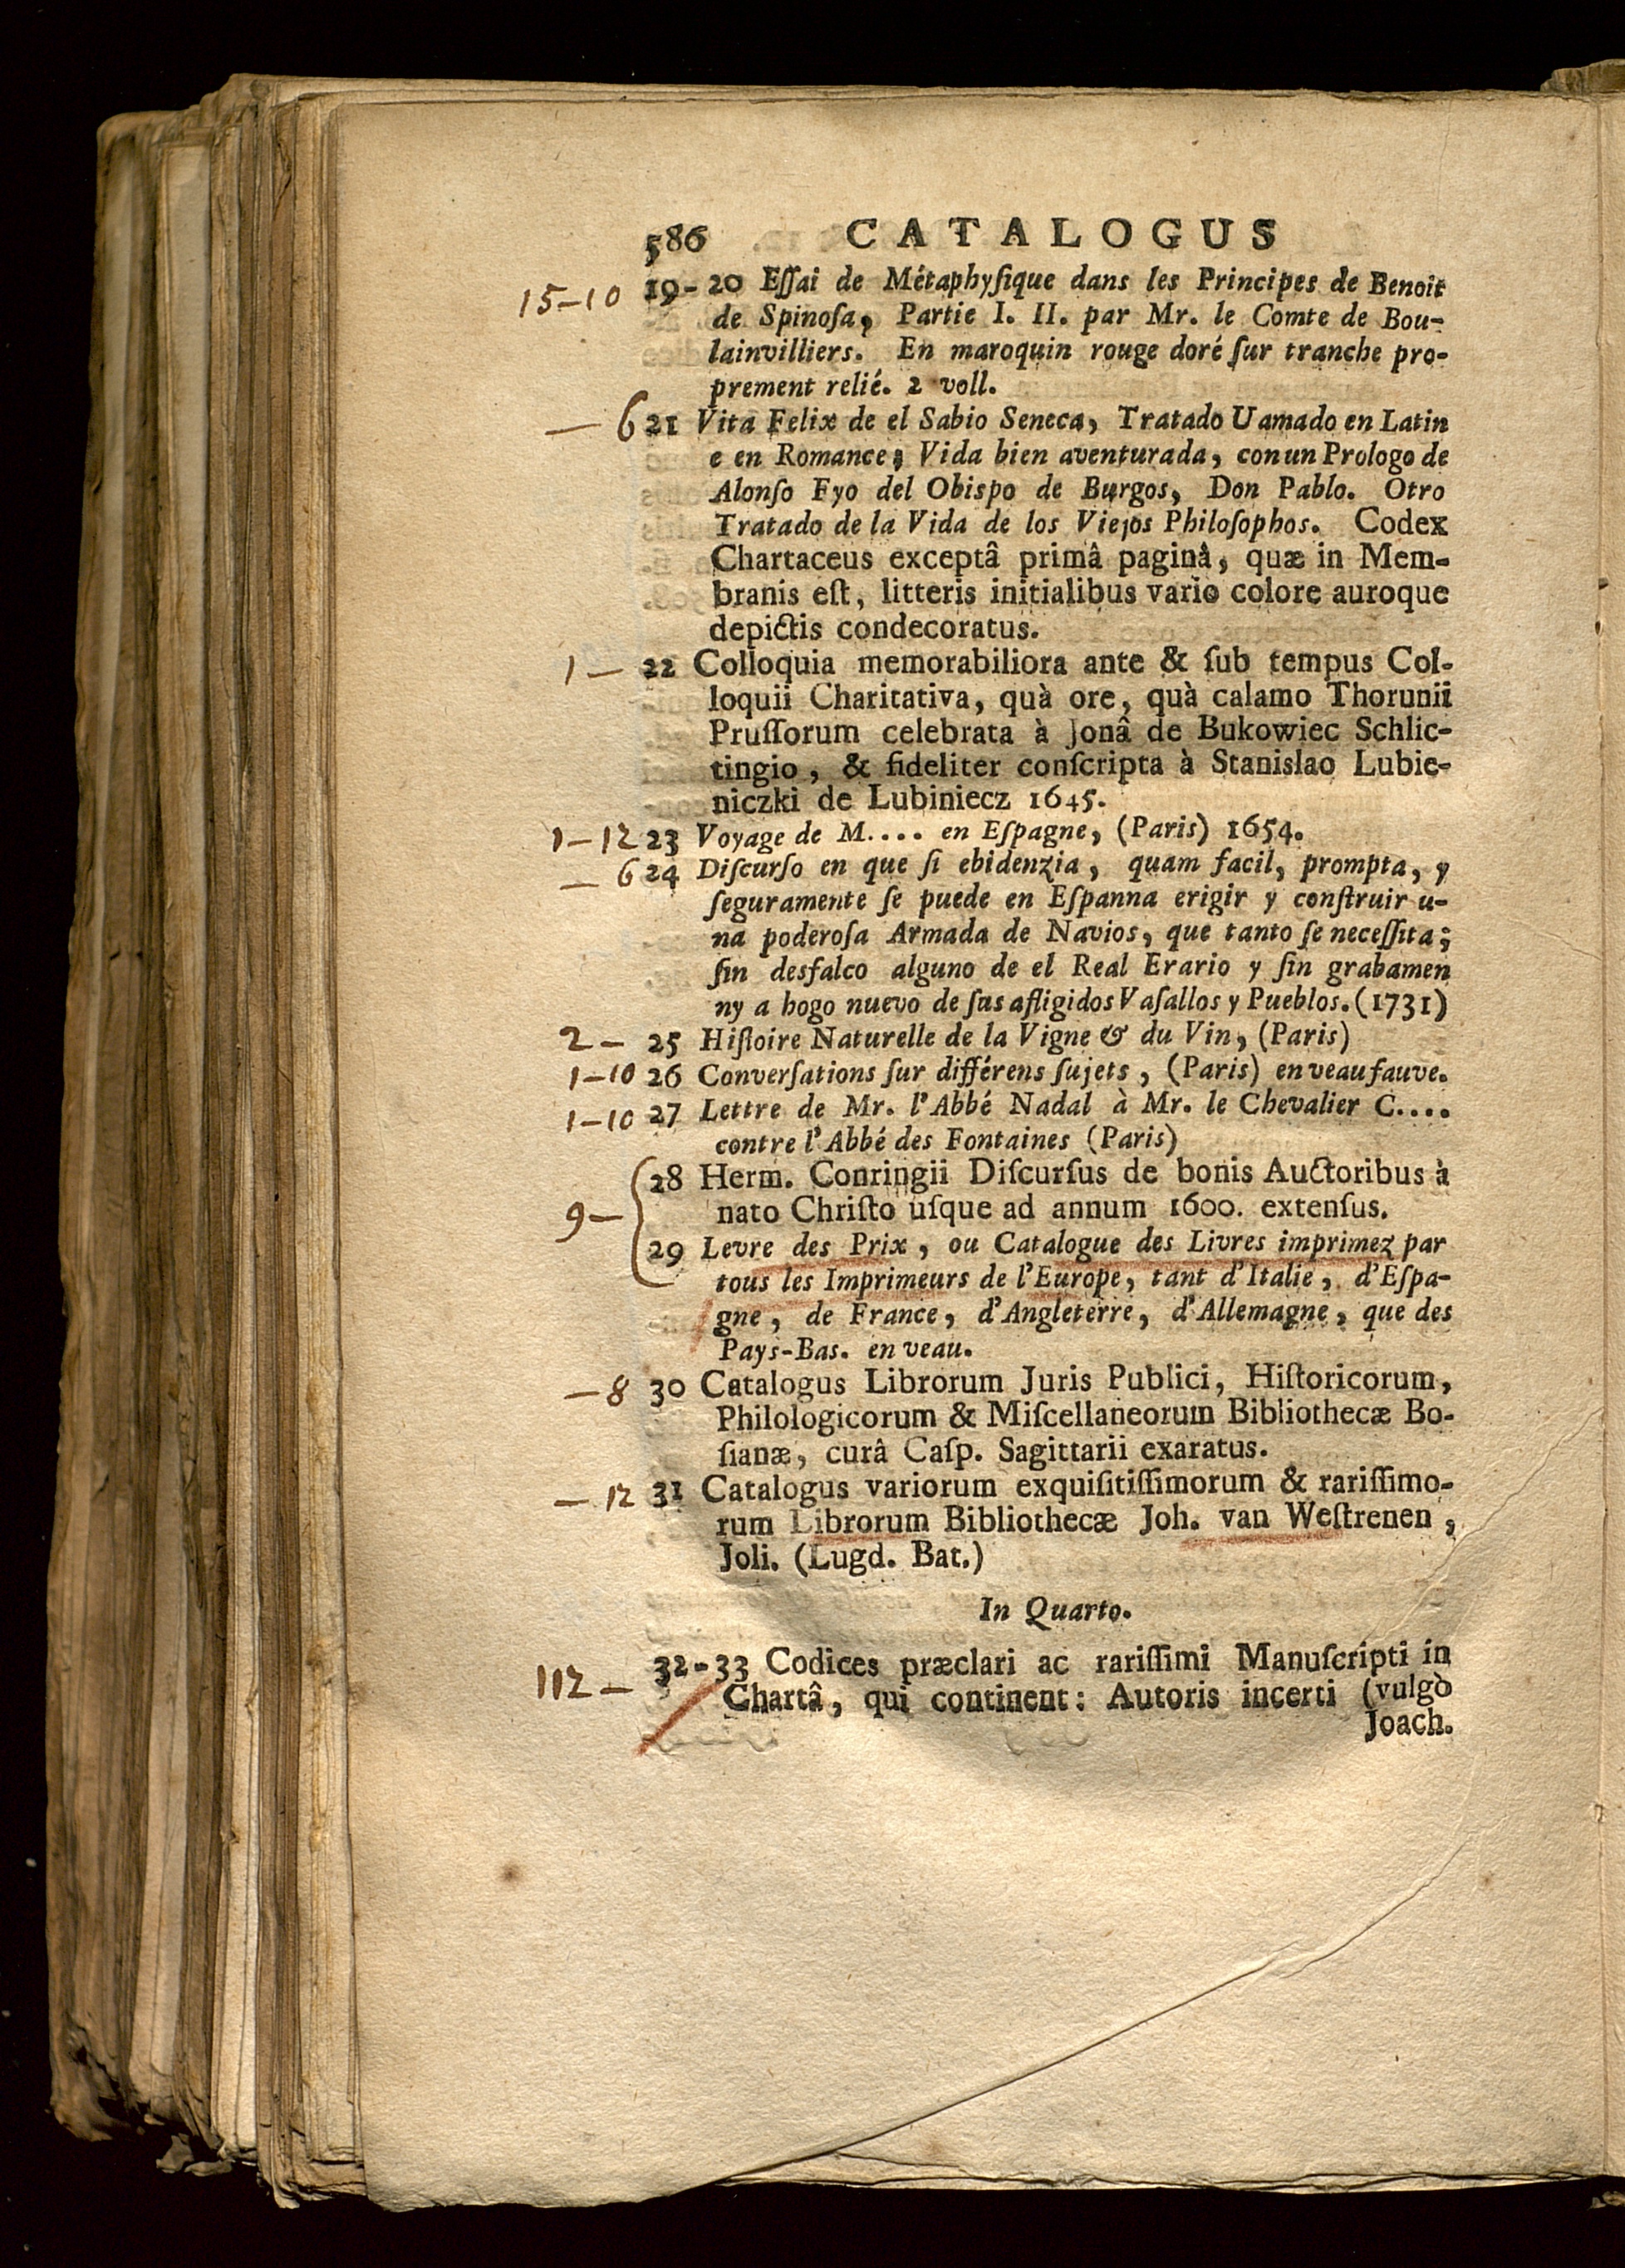 586 CATALOGUS
15-10 19-20 Eſſai de Métaphyſique dans les Principes de Benoit
de Spinoſa, Partie I. II. par Mr. le Comte de Bou-
lainvilliers. En maroquin rouge doré ſur tranche pro-
prement relié. 2 voll.
— 6 21 Vita Felix de el Sabio Seneca, Tratado Uamado en Latin
e en Romance, Vida bien aventurada, con un Prologo de
Alonſo Fyo del Obispo de Burgos, Don Pablo. Otro
Tratado de la Vida de los Viejos Philoſophos. Codex
Chartaceus exceptâ primâ paginâ, quæ in Mem-
branis eſt, litteris initialibus vario colore auroque
depictis condecoratus.
1 — 22 Colloquia memorabiliora ante & ſub tempus Col-
loquii Charitativa, quà ore, quà calamo Thorunii
Pruſſorum celebrata à Jonâ de Bukowiec Schlic-
tingio, & fideliter conſcripta à Stanislao Lubie-
niczki de Lubiniecz 1645.
1-12 23 Voyage de M.... en Eſpagne, (Paris) 1654.
— 6 24 Diſcurſo en que ſi ebidenzia, quam facil, prompta, y
ſeguramente ſe puede en Eſpanna erigir y conſtruir u-
na poderoſa Armada de Navios, que tanto ſe neceſſita;
ſin desfalco alguno de el Real Erario y ſin grabamen
ny a hogo nuevo de ſus afligidos Vaſallos y Pueblos. (1731)
2 — 25 Hiſtoire Naturelle de la Vigne & du Vin, (Paris)
1-10 26 Converſations ſur différens ſujets, (Paris) en veau fauve.
1-10 27 Lettre de Mr. l'Abbé Nadal à Mr. le Chevalier C....
contre l'Abbé des Fontaines (Paris)
28 Herm. Conringii Diſcurſus de bonis Auctoribus à
9 — nato Chriſto uſque ad annum 1600. extenſus.
29 Levre des Prix, ou Catalogue des Livres imprimez par
tous les Imprimeurs de l'Europe, tant d'Italie, d'Eſpa-
gne, de France, d'Angleterre, d'Allemagne, que des
Pays-Bas. en veau.
— 8 30 Catalogus Librorum Juris Publici, Hiſtoricorum,
Philologicorum & Miſcellaneorum Bibliothecæ Bo-
ſianæ, curâ Caſp. Sagittarii exaratus.
— 12 31 Catalogus variorum exquiſitiſſimorum & rariſſimo-
rum Librorum Bibliothecæ Joh. van Weſtrenen,
Joli. (Lugd. Bat.)
In Quarto.
112 — 32-33 Codices præclari ac rariſſimi Manuſcripti in
Chartâ, qui continent: Autoris incerti (vulgò
Joach.